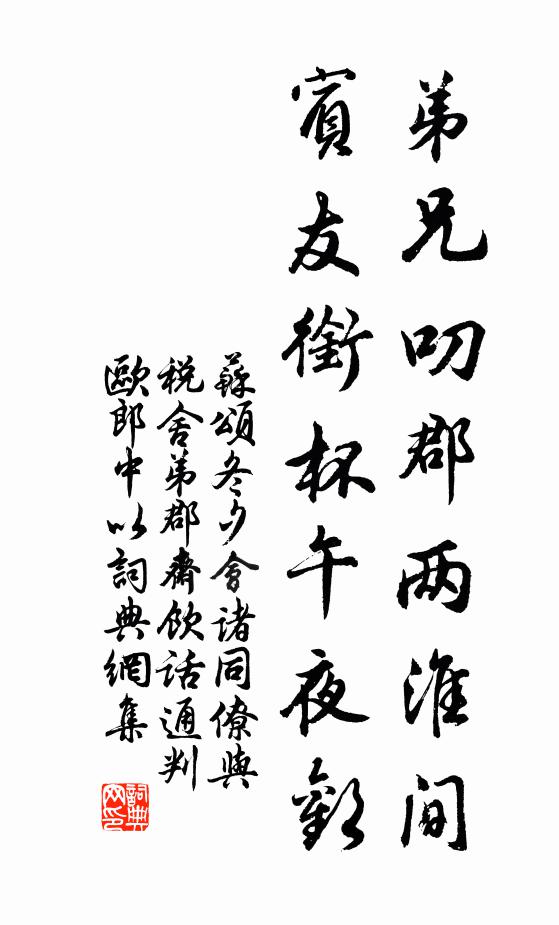 弟兄叨郡两淮间
賓友銜杯午夜歡
蘇頌冬夕會諸同僚與
税舍弟郡齋飲話通判
歐郎中以詞典網集
詞典
网印